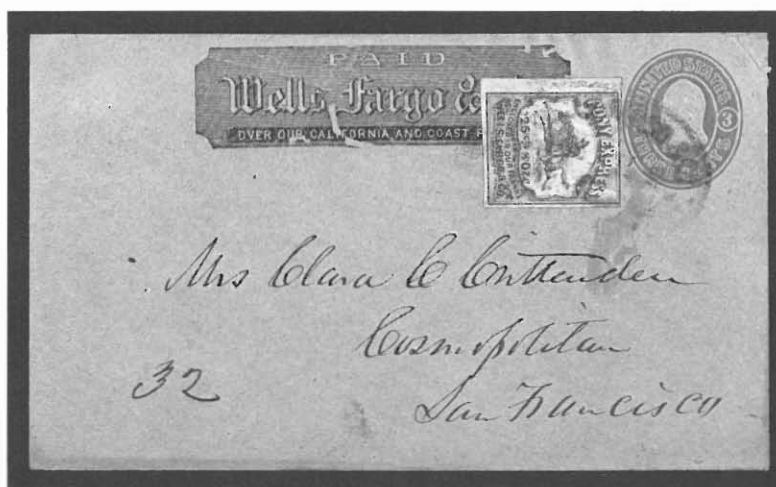 PAID
Wells, Fargo &
OVER OUR CALIFORNIA AND COAST
PONY EXPRESS
UNITED STATES
3
Mrs Clara C Crittenden
Cosmopolitan
San Francisco
32